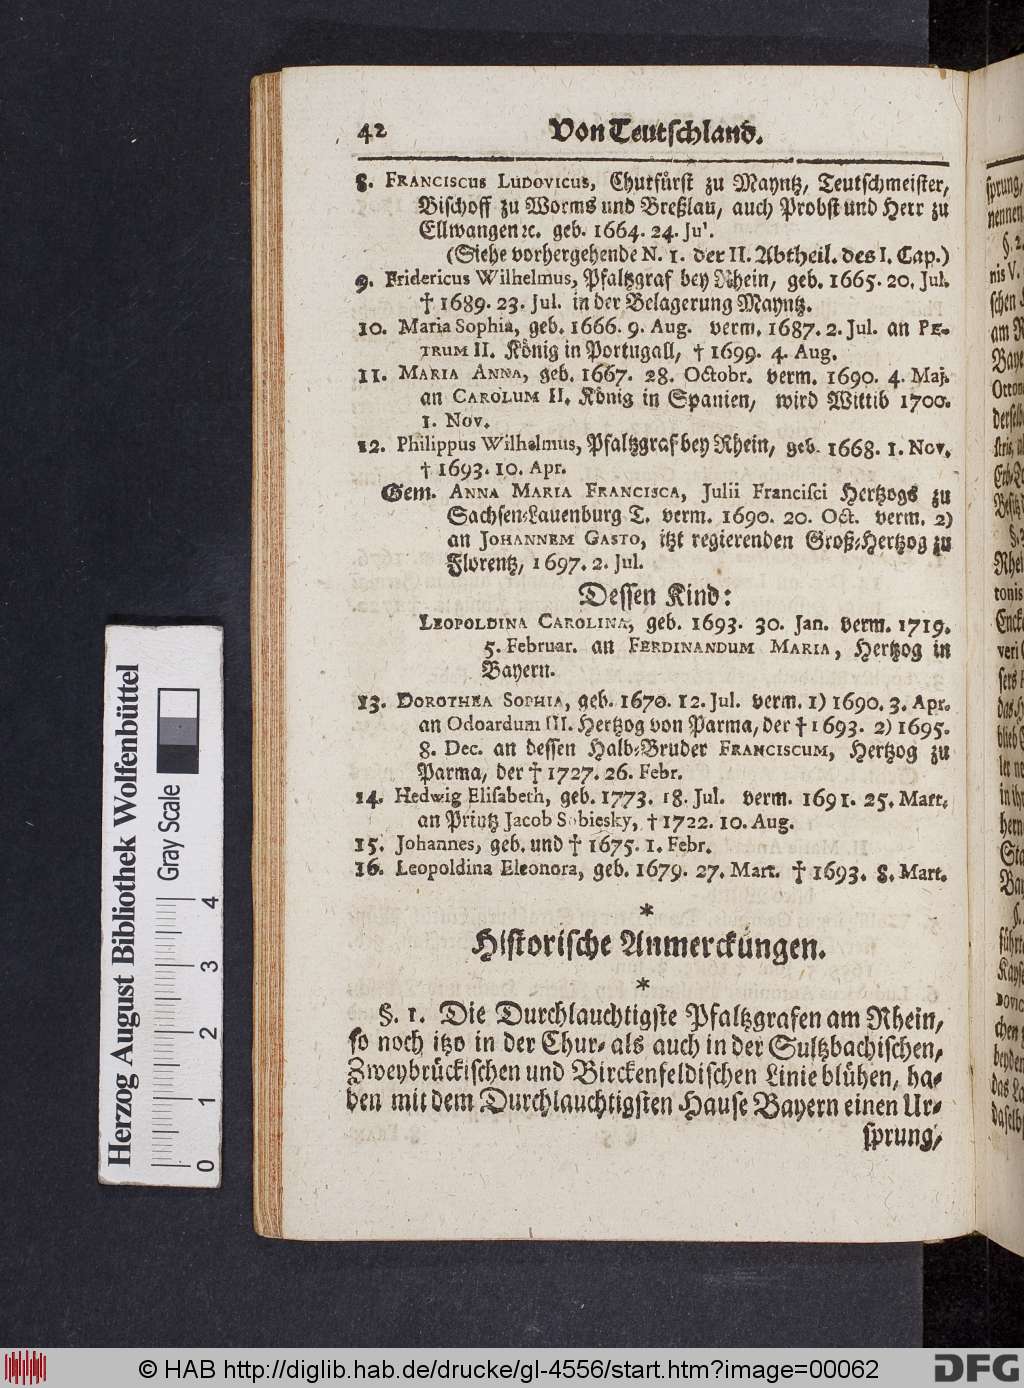 42 Von Teutschland.
8. FRANCISCUS LUDOVICUS, Churfürst zu Mayntz, Teutschmeister,
Bischoff zu Worms und Breßlau, auch Probst und Herr zu
Ellwangen ꝛc. geb. 1664. 24. Jul.
(Siehe vorhergehende N. 1. der II. Abtheil. des I. Cap.)
9. Fridericus Wilhelmus, Pfaltzgraf bey Rhein, geb. 1665. 20. Jul.
† 1689. 23. Jul. in der Belagerung Mayntz.
10. Maria Sophia, geb. 1666. 9. Aug. verm. 1687. 2. Jul. an PE-
TRUM II. König in Portugall, † 1699. 4. Aug.
11. MARIA ANNA, geb. 1667. 28. Octobr. verm. 1690. 4. Maj.
an CAROLUM II. König in Spanien, wird Wittib 1700.
1. Nov.
12. Philippus Wilhelmus, Pfaltzgraf bey Rhein, geb. 1668. 1. Nov.
† 1693. 10. Apr.
Gem. ANNA MARIA FRANCISCA, Julii Francisci Hertzogs zu
Sachsen-Lauenburg T. verm. 1690. 20. Oct. verm. 2)
an JOHANNEM GASTO, itzt regierenden Groß-Hertzog zu
Florentz, 1697. 2. Jul.
Dessen Kind:
LEOPOLDINA CAROLINA, geb. 1693. 30. Jan. verm. 1719.
5. Februar. an FERDINANDUM MARIA, Hertzog in
Bayern.
13. DOROTHEA SOPHIA, geb. 1670. 12. Jul. verm. 1) 1690. 3. Apr.
an Odoardum III. Hertzog von Parma, der † 1693. 2) 1695.
8. Dec. an dessen Halb-Bruder FRANCISCUM, Hertzog zu
Parma, der † 1727. 26. Febr.
14. Hedwig Elisabeth, geb. 1773. 18. Jul. verm. 1691. 25. Mart.
an Printz Jacob Sobiesky, † 1722. 10. Aug.
15. Johannes, geb. und † 1675. 1. Febr.
16. Leopoldina Eleonora, geb. 1679. 27. Mart. † 1693. 8. Mart.
*
Historische Anmerckungen.
*
§. 1. Die Durchlauchtigste Pfaltzgrafen am Rhein,
so noch itzo in der Chur- als auch in der Sultzbachischen,
Zweybrückischen und Birckenfeldischen Linie blühen, ha-
ben mit dem Durchlauchtigsten Hause Bayern einen Ur-
sprung,
sprung,
nennen
§. 2.
nis V.
schen
am R
Baye
Otton
derselb
Besitz
§. 3
Rhei
tonis
Encke
veri
sers
das H
blieb
ler
in ihr
hern
Sta
Bay
§.
führ
Kayse
DOVIC
chen
beyder
das La
daselbst
Herzog August Bibliothek Wolfenbüttel
Gray Scale
0 1 2 3 4
© HAB http://diglib.hab.de/drucke/gl-4556/start.htm?image=00062
DFG